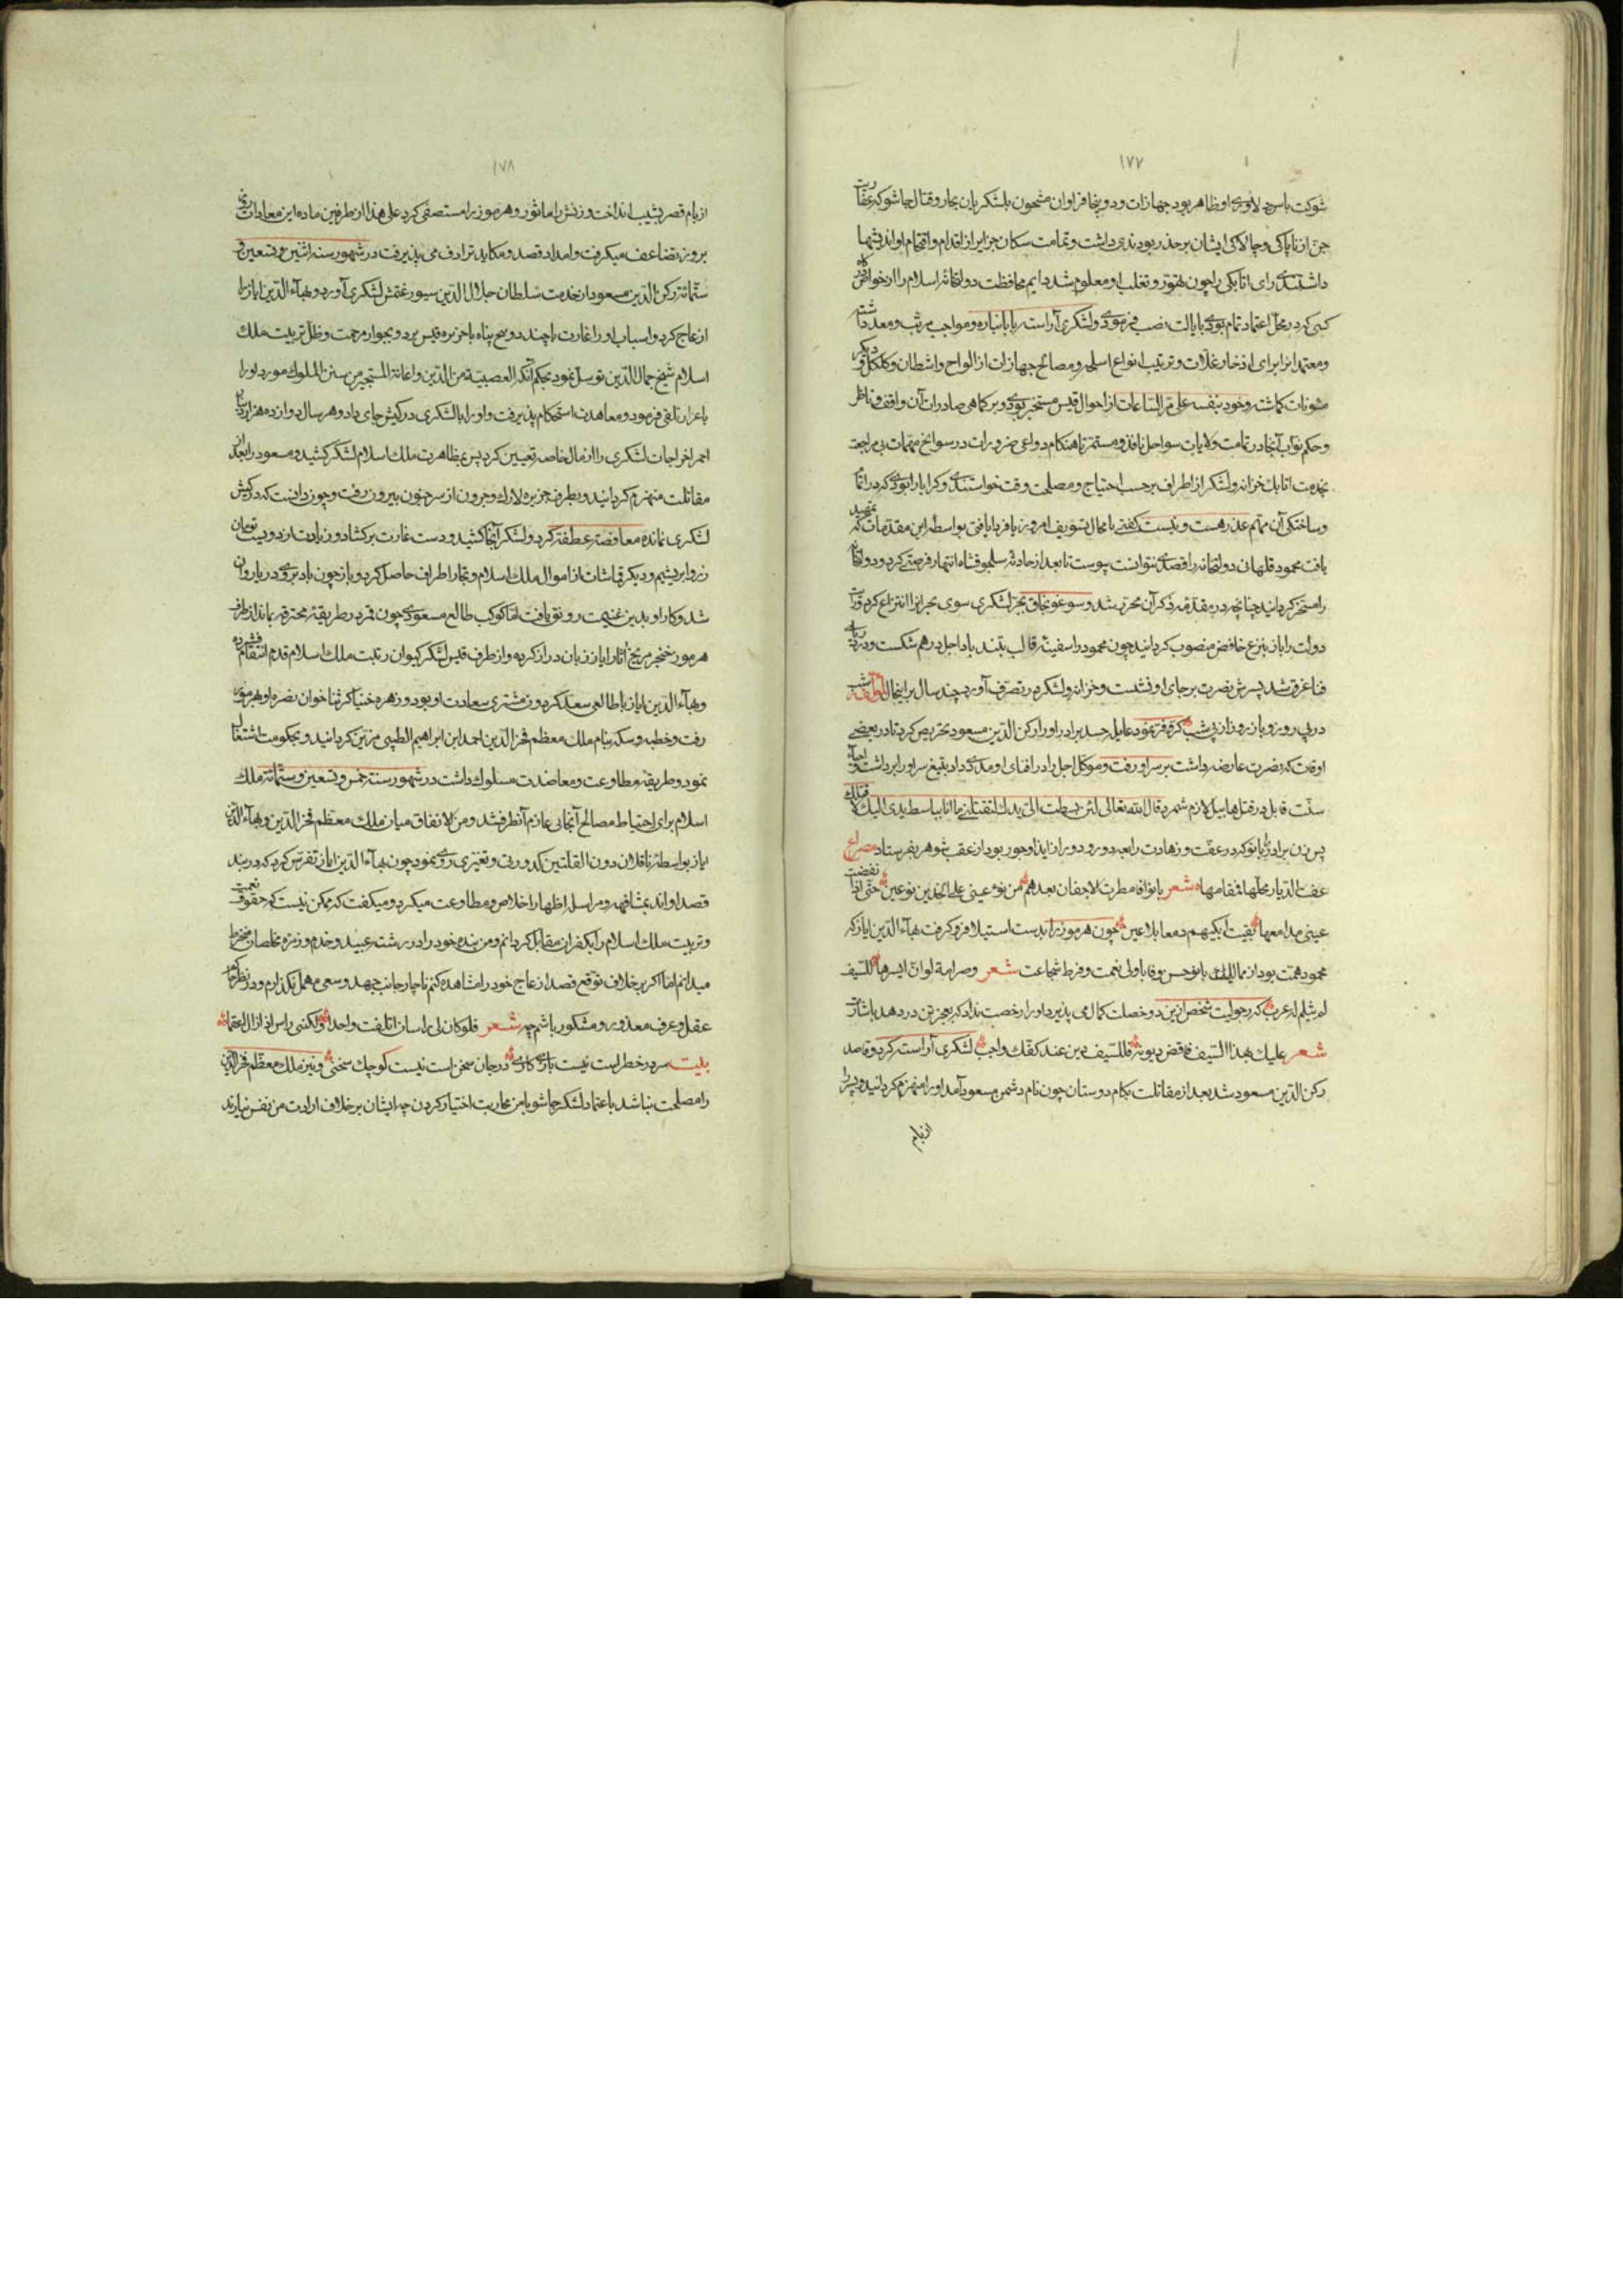 ۱۷۷
شوکت باس و دلاوری او ظاهر بود جهازات و دوینجا فراوان مشحون بلشکریان بحار و قتال جاشو که عفاریت
جن از ناپاکی و چالاکی ایشان بر حذر بودندی داشت و تمامت سکان جزایر از اقدام و اقتحام او اندیشها
داشتندی رای اتابکی را چون تهور و تغلب او معلوم شد دایم محافظت دولتخانه اسلام را از خواص درگاه
کسی که در محل اعتماد تمام بودی بایالت نصب فرمودی و لشکری آراسته با بانباره و مواجب مرتب و معد داشته
و معتمدانرا برای اذخار غلات و ترتیب انواع اسلحه و مصالح جهازات از الواح و اشطان و کلکل و دیگر
مئونات کماشته و خود بنفسه علی مر الساعات از احوال قیس مستخبر بودی و بر کماهی صادرات آن واقف و ناظر
و حکم نواب آنجا در تمامت ولایات سواحل نافذ و مستمر تا هنکام دواعی ضرورات در سوانح مهمات بی مراجعت
بخدمت اتابک خزانه و لشکر از اطراف بر حسب احتیاج و مصلحت وقت خواستندی و کرا یارا بودی که در اتمام
و ساختکی آن متمم عذر هست و نیست کفتی یا مجال تسویف امروز یا فردا یافتی بواسطه این مقدمات که تمهید
یافت محمود قلهاتی دولتخانه را قصدی نتوانست پیوست تا بعد از حادثه سلجوقشاه انتهاز فرصتی کرد و دولتخانه
را مسخر کردانید چنانچه در مقدمه ذکر آن محرر شد و سوغونجاق بجر لشکری سوی بحر انرا انتزاع کرد و رایت
دولت را باز بنزع خافض منصوب کردانید چون محمود را سفینه قالب بتند باد اجل در هم شکست و در دریای
فنا غرق شد پسرش نصرت بر جای او نشست و خزانه و لشکر در تصرف آورد چند سال بر اینحال لمولفه شب
در پی روز و باز روز از پی شب کر و فر نمود عایله حسد برادر او را رکن الدین مسعود تحریص کرد تا در بعضی
اوقات که نصرت عارضه داشت بر سر او رفت و موکل اجل را در افنای او مددی داد بتیغ سر او را برداشت و احیاء
سنت قابل در قتل هابیل لازم شمرد قال الله تعالی لئن بسطت الی یدک لتقتلنی ما انا بباسط یدی الیک لاقتلک
پس زن برادر را بانو که در عفت و زهادت رابعه دور و دوران ایذا و جور بود از عقب شوهر بفرستاد مصراع
عفت الدیار محلها فمقامها شعر بانوا فامطرت الاجفان بعدهم من نوء عینی علی الخدین نوءین حتی اذا نفضت
عینی مدامعها بقیت ابکیهم دمعا بلا عین چون هرموز را بدست استیلا فرو کرفت بهاء الدین ایاز که
محمود همت بود از ممالیک بانو حسن وفا با ولی نعمت و فرط شجاعت شعر وصرامة لو ان ایسرها للسیف
لم یثلم له غرب که رجولیت شخص ازین دو خصلت کمال می پذیرد او را رخصت نداد که بهرتن در دهد باشارت
شعر علیک بهذا السیف فاقض دیونه فللسیف دین عند کفک واجب لشکری آراسته کرد و قاصد
رکن الدین مسعود شد بعد از مقاتلت بکام دوستان چون نام دشمن مسعود آمد او را منهزم کردانید و پسر را
از بام
۱۷۸
از بام قصر بشیب انداخت و زنش را ماثور و هرموز را مستصفی کرد علی هذا از طرفین ماده این معادات روز
بروز تضاعف میکرفت و امداد قصد و مکاید ترادف می پذیرفت در شهور سنه اثنین و تسعین و
ستمائه رکن الدین مسعود از خدمت سلطان جلال الدین سیورغتمش لشکری آورد و بهاء الدین ایاز را
ازعاج کرد و اسباب او را غارت با چند دونیج پناه با جزیره قیس برد و بجوار مرحمت و ظل تربیت ملک
اسلام شیخ جمال الدین توسل نمود بحکم آنکه العصبیة من الدین و اعانة المستجیر من سنن الملوک مورد او را
باعزاز تلقی فرمود و معاهدت استحکام پذیرفت و او را با لشکری در کیش جای داد و هر سال دوازده هزار دینار
احمر اخراجات لشکری را از مال خاصه تعیین کرد پس بمظاهرت ملک اسلام لشکر کشید و مسعود را بعد از
مقاتلت منهزم کردانید و بطرف جزیره لارک و جرون از سر جنون بیرون رفت و چون دانست که در کیش
لشکری نمانده معافصة عطفة کرد و لشکر آنجا کشید و دست غارت برکشاد و زیادت از دویست تومان
زر و ابریشم و دیکر قماشات از اموال ملک اسلام و تجار اطراف حاصل کرد و باز چون باد بر روی دریا روان
شد و کار او بدین غنیمت رونق یافت اما کوکب طالع مسعودی چون قمر در طریقه محترقه بماند از طرف
هرموز خنجر مریخ آثار ایاز زبان دراز کرده و از طرف قیس لشکر کیوان رتبت ملک اسلام قدم انتقام فشرده
و بهاء الدین ایاز با طالعی سعد کردون مشتری سعادت او بود و زهره خنیاکر ثناخوان بصره او بهرموز
رفت و خطبه و سکه بنام ملک معظم فخر الدین احمد ابن ابراهیم الطیبی مزین کردانید و بحکومت اشتغال
نمود و طریقه مطاوعت و معاضدت مسلوک داشت در شهور سنه خمس و تسعین و ستمائة ملک
اسلام برای احتیاط مصالح آنجائی عازم آنطرف شد و من الاتفاق میان ملک معظم فخر الدین و بهاء الدین
ایاز بواسطه ناقلان دون القلتین کدورتی و تغیری روی نمود چون بهاء الدین ایاز تفرس کرد که در بند
قصد او اند بمشافهه و مراسله اظهار اخلاص و مطاوعت میکرد و میکفت که ممکن نیست که حقوق نعمت
و تربیت ملک اسلام را بکفران مقابل کردانم و من بنده خود را در رشته عبید و خدم و زمره مخلصان منخرط
میدانم اما اکر بر خلاف توقع قصد ازعاج خود را مشاهده کنم ناچار جانب جهد و سعی مهمل نکذارم و در نظر حاکم
عقل و عرف معذور و مشکور باشم چه شعر فلو کان لی راسان اتلفت واحدا ولکنه راس اذا زال اعقما
بیت سر در خطر است نیست بازی کاری در جان سخن است نیست کوچک سخنی و نیز ملک معظم فخر الدین
را مصلحت نباشد باعتماد لشکر جاشو با من محاربت اختیار کردن چه ایشان بر خلاف ارادت من نفس نیارند